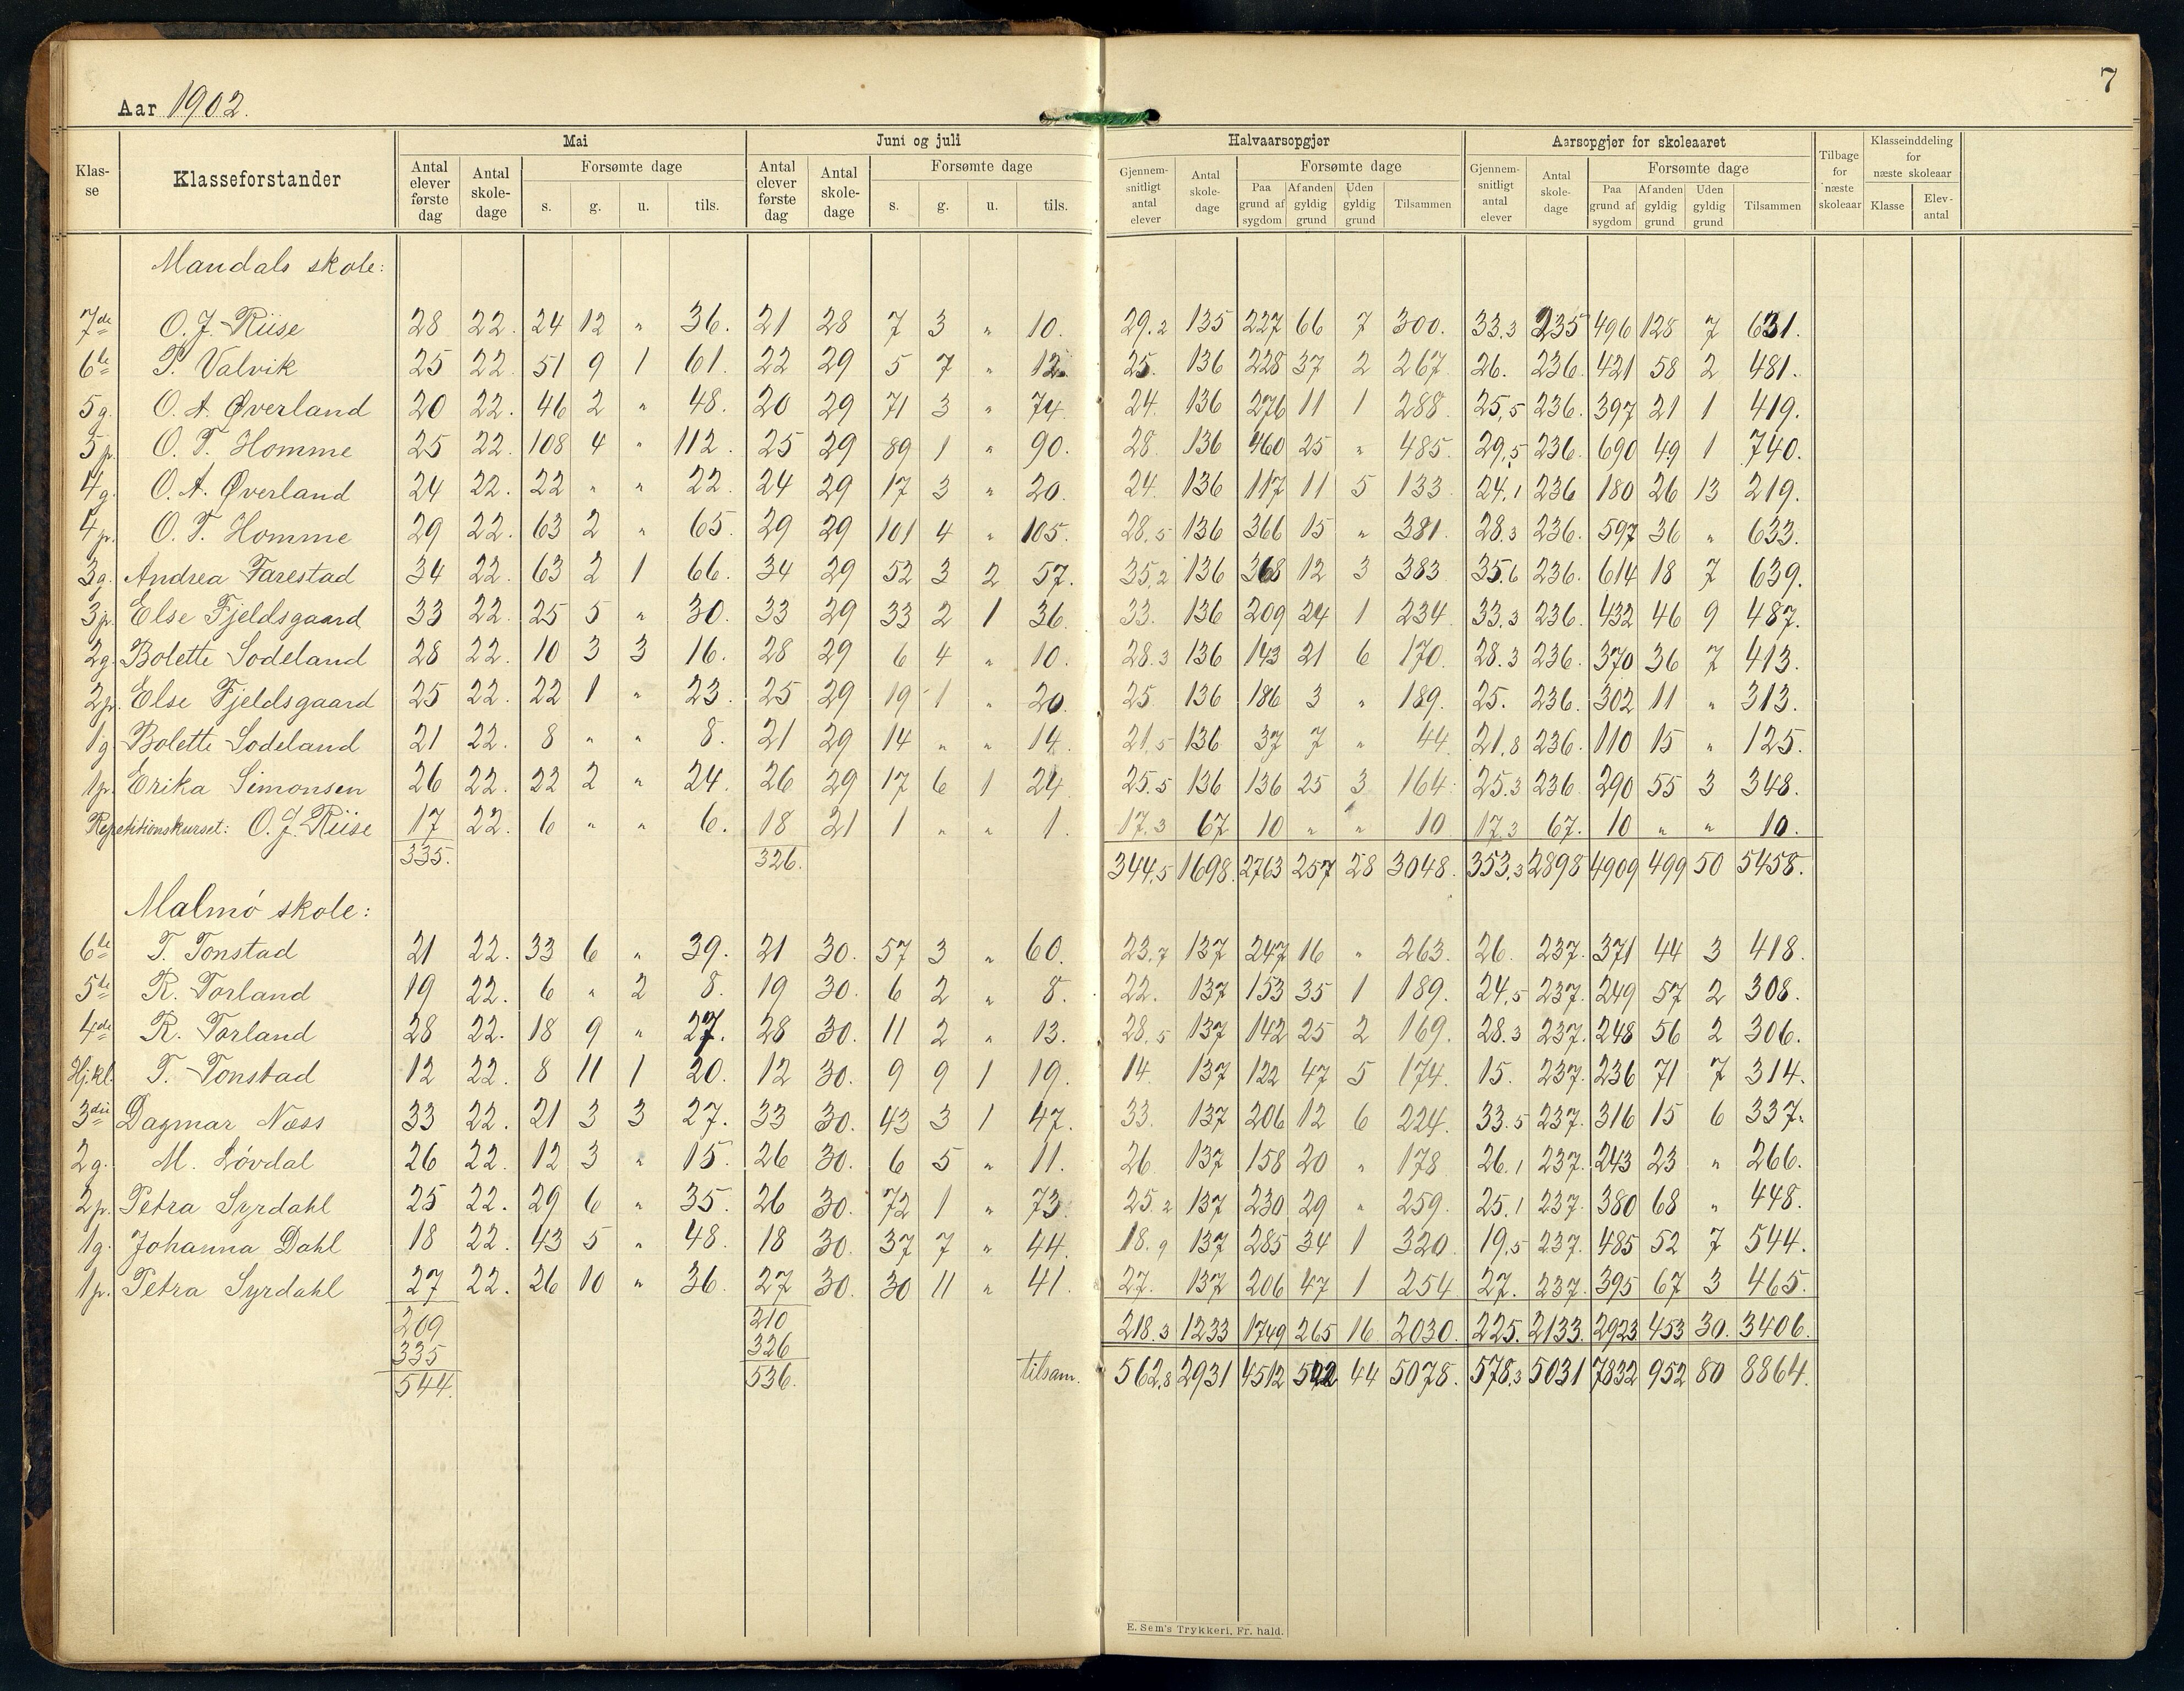 7
Aar 1902.
Klasse Klasseforstander Mai Juni og juli Halvaarsopgjør Aarsopgjør for skoleaaret Tilbage for næste skoleaar Klasseinddeling for næste skoleaar
Antal elever første dag Antal skoledage Forsømte dage Antal elever første dag Antal skoledage Forsømte dage Gjennemsnitligt antal elever Antal skoledage Forsømte dage Gjennemsnitligt antal elever Antal skoledage Forsømte dage Klasse Elevantal
s. g. u. tils. s. g. u. tils. Paa grund af sygdom Af anden gyldig grund Uden gyldig grund Tilsammen Paa grund af sygdom Af anden gyldig grund Uden gyldig grund Tilsammen
Mandals skole:
7de O. J. Riise 28 22. 24 12 " 36. 21 28 7 3 " 10. 29.2 135 227 66 7 300. 33.3 235 496 128 7 631.
6te P. Valvik 25 22. 51 9 1 61. 22 29 5 7 " 12. 25. 136 228 37 2 267. 26. 236. 421 58 2 481.
5g. O. A. Øverland 20 22. 46 2 " 48. 20 29 71 3 " 74. 24. 136 276 11 1 288. 25,5 236. 397 21 1 419.
5p. O. T. Homme 25 22. 108 4 " 112. 25 29 89 1 " 90. 28. 136 460 25 " 485. 29,5 236. 690 49 1 740.
4g. O. A. Øverland 24 22. 22 " " 22. 24 29 17 3 " 20. 24. 136 117 11 5 133 24,1 236 180 26 13 219.
4p. O. T. Homme 29 22. 63 2 " 65. 29 29 101 4 " 105. 28,5 136 366 15 " 381. 28.3 236. 597 36 " 633.
3g. Andrea Farestad 34 22. 63 2 1 66. 34 29 52 3 2 57. 35,2 136 368 12 3 383 35.6 236. 614 18 7 639.
3p. Else Fjeldsgaard 33 22. 25 5 " 30. 33 29 33 2 1 36. 33. 136 209 24 1 234 33.3 236. 432 46 9 487.
2g. Bolette Sodeland 28 22. 10 3 3 16. 28 29 6 4 " 10. 28.3 136 143 21 6 170. 28.3 236. 370 36 7 413.
2p. Else Fjeldsgaard 25 22. 22 1 " 23. 25 29 19 1 " 20. 25 136 186 3 " 189. 25. 236. 302 11 " 313.
1g Bolette Sodeland 21 22. 8 " " 8. 21 29 14 " " 14. 21,5 136 37 7 " 44 21,8 236. 110 15 " 125.
1p. Erika Simonsen 26 22. 22 2 " 24. 26 29 17 6 1 24. 25.5 136 136 25 3 164. 25.3 236. 290 55 3 348.
Repetitionskurset: O. J. Riise 17 22. 6 " " 6. 18 21 1 " " 1. 17,3 67 10 " " 10 17,3 67. 10 " " 10.
335. 326. 344,5 1698. 2763 257 28 3048. 353,3 2898 4909 499 50 5458.
Malmø skole:
6te T. Tonstad 21 22. 33 6 " 39. 21 30. 57 3 " 60. 23,7 137 247 16 " 263. 26. 237. 371 44 3 418.
5te R. Torland 19 22. 6 " 2 8. 19 30. 6 2 " 8. 22. 137 153 35 1 189. 24,5 237. 249 57 2 308.
4de R. Torland 28 22. 18 9 " 27. 28 30. 11 2 " 13. 28,5 137 142 25 2 169. 28.3 237. 248 56 2 306.
Hj.kl. T. Tonstad 12 22. 8 11 1 20. 12 30. 9 9 1 19. 14. 137 122 47 5 174. 15. 237. 236 71 7 314.
3die Dagmar Næss 33 22. 21 3 3 27. 33 30. 43 3 1 47. 33. 137 206 12 6 224. 33.5 237. 316 15 6 337.
2g. M. Løvdal 26 22. 12 3 " 15. 26 30. 6 5 " 11. 26. 137 158 20 " 178 26.1 237. 243 23 " 266.
2p. Petra Syrdahl 25 22. 29 6 " 35. 26 30. 72 1 " 73. 25.2 137 230 29 " 259. 25.1 237. 380 68 " 448.
1g. Johanna Dahl 18 22. 43 5 " 48. 18 30. 37 7 " 44. 18.9 137 285 34 1 320. 19,5 237. 485 52 7 544.
1p. Petra Syrdahl 27 22. 26 10 " 36. 27 30. 30 11 " 41. 27. 137 206 47 1 254 27. 237. 395 67 3 465.
209 210 218.3 1233 1749 265 16 2030. 225. 2133. 2923 453 30. 3406.
335 326
544. 536. tilsam. 562,8 2931 4512 522 44 5078. 578,3 5031 7832 952 80 8864.
E. Sem's Trykkeri, Fr. hald.